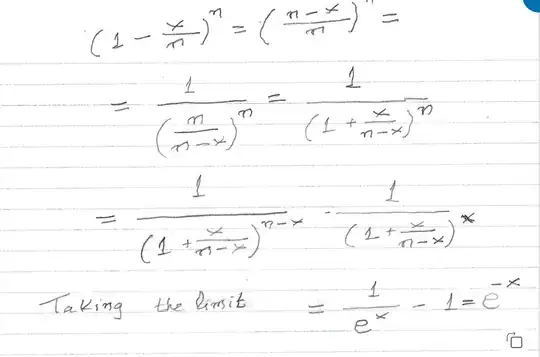 (1 - x/n)^n = ((n-x)/n)^n =
= 1/(n/(n-x))^n = 1/(1 + x/(n-x))^n
= 1/(1 + x/(n-x))^(n-x) · 1/(1 + x/(n-x))^x
Taking the limit = 1/e^x - 1 = e^-x